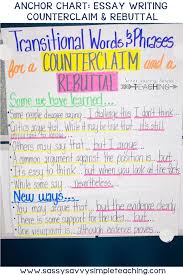 ANCHOR CHART: ESSAY WRITING
COUNTERCLAIM & REBUTTAL
Transitional Words & Phrases
for a COUNTERCLAIM and a
REBUTTAL
TEACHING
Some we have learned...
Some people disagree saying... I challenge this I don't think
Critics argue that... While it may be true that... still
Others may argue that... but...
A common argument against the position is... but
It's easy to think... but when you look at the
While some say... nevertheless...
New ways...
You may argue that... but the evidence clearly
There is some support for the idea... but
One obvious argument is... but
www.sassysavvysimpleteaching.com